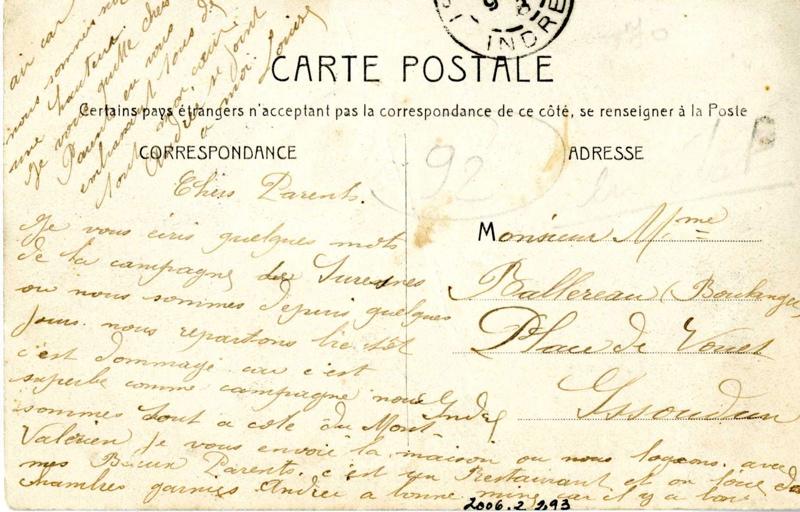 INDRE
CARTE POSTALE
Certains pays étrangers n'acceptant pas la correspondance de ce côté, se renseigner à la Poste
CORRESPONDANCE
ADRESSE
92
Chers Parents.
Je vous écris quelques mots
de la campagne de Suresnes
ou nous sommes depuis quelques
jours. nous repartons bientôt
c'est dommage car c'est
superbe comme campagne nous
sommes tout a coté du Mont
Valérien je vous envoie la maison ou nous logeons. avec
mes Beaux Parents. c'est un Restaurant et on loue des
chambres garnies. Andrée a bonne mine car il y a bon
air car
nous sommes
une hauteur.
Je vous quitte chers
Parents en vous
embrassant tous de
tout mon cœur
André se joint
a moi. Louise
Monsieur Mme
Rallereau (Boulanger
Place de Vouet
Issoudun
Indre
2006.2.293